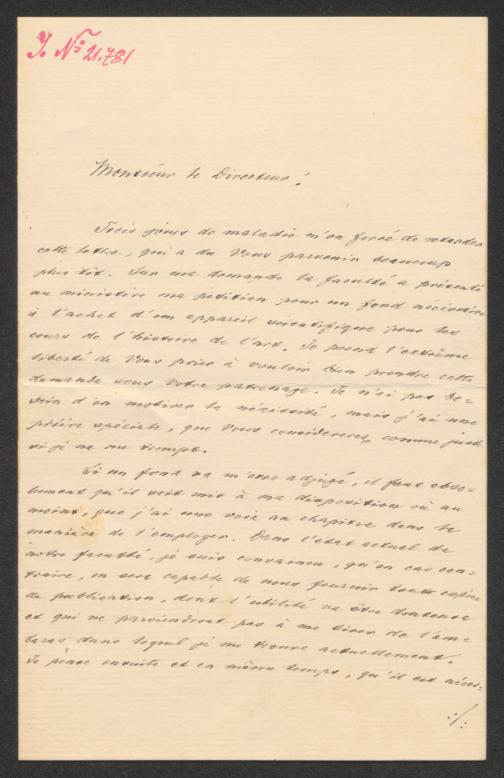 J. No 21.781
Monsieur le Directeur!
Trois jours de maladie m'on forcé de retarder
cette lettre, qui a du Vous parvenir beaucoup
plus tôt. Sur ma demande la faculté a présenté
au ministère ma petition pour un fond nécéssaire
à l'achat d'un appareil scientifique pour les
cours de l'histoire de l'art. Je prend l'extrême
liberté de Vous prier à vouloir bien prendre cette
demande sous Votre patronage. Je n'ai pas be-
soin d'en motiver la nécésité, mais j'ai une
prière spéciale, que Vous considererez comme juste
si je ne me trompe.
Si un fond va m'être adjugé, il faut abso-
lument qu'il soit mis à ma disposition où au
moins, que j'ai une voix au chapitre dans la
manière de l'employer. Dans l'état actuel de
notre faculté, je suis convaincu, qu'en cas con-
traire, on sera capable de nous fournir toute espèce
de publication, dont l'utilité va être douteuse
et qui ne parviendront pas à me tirer de l'em-
baras dans lequel je me trouve actuellement.
Je pense ensuite et en même temps, qu'il est néces-
:/: